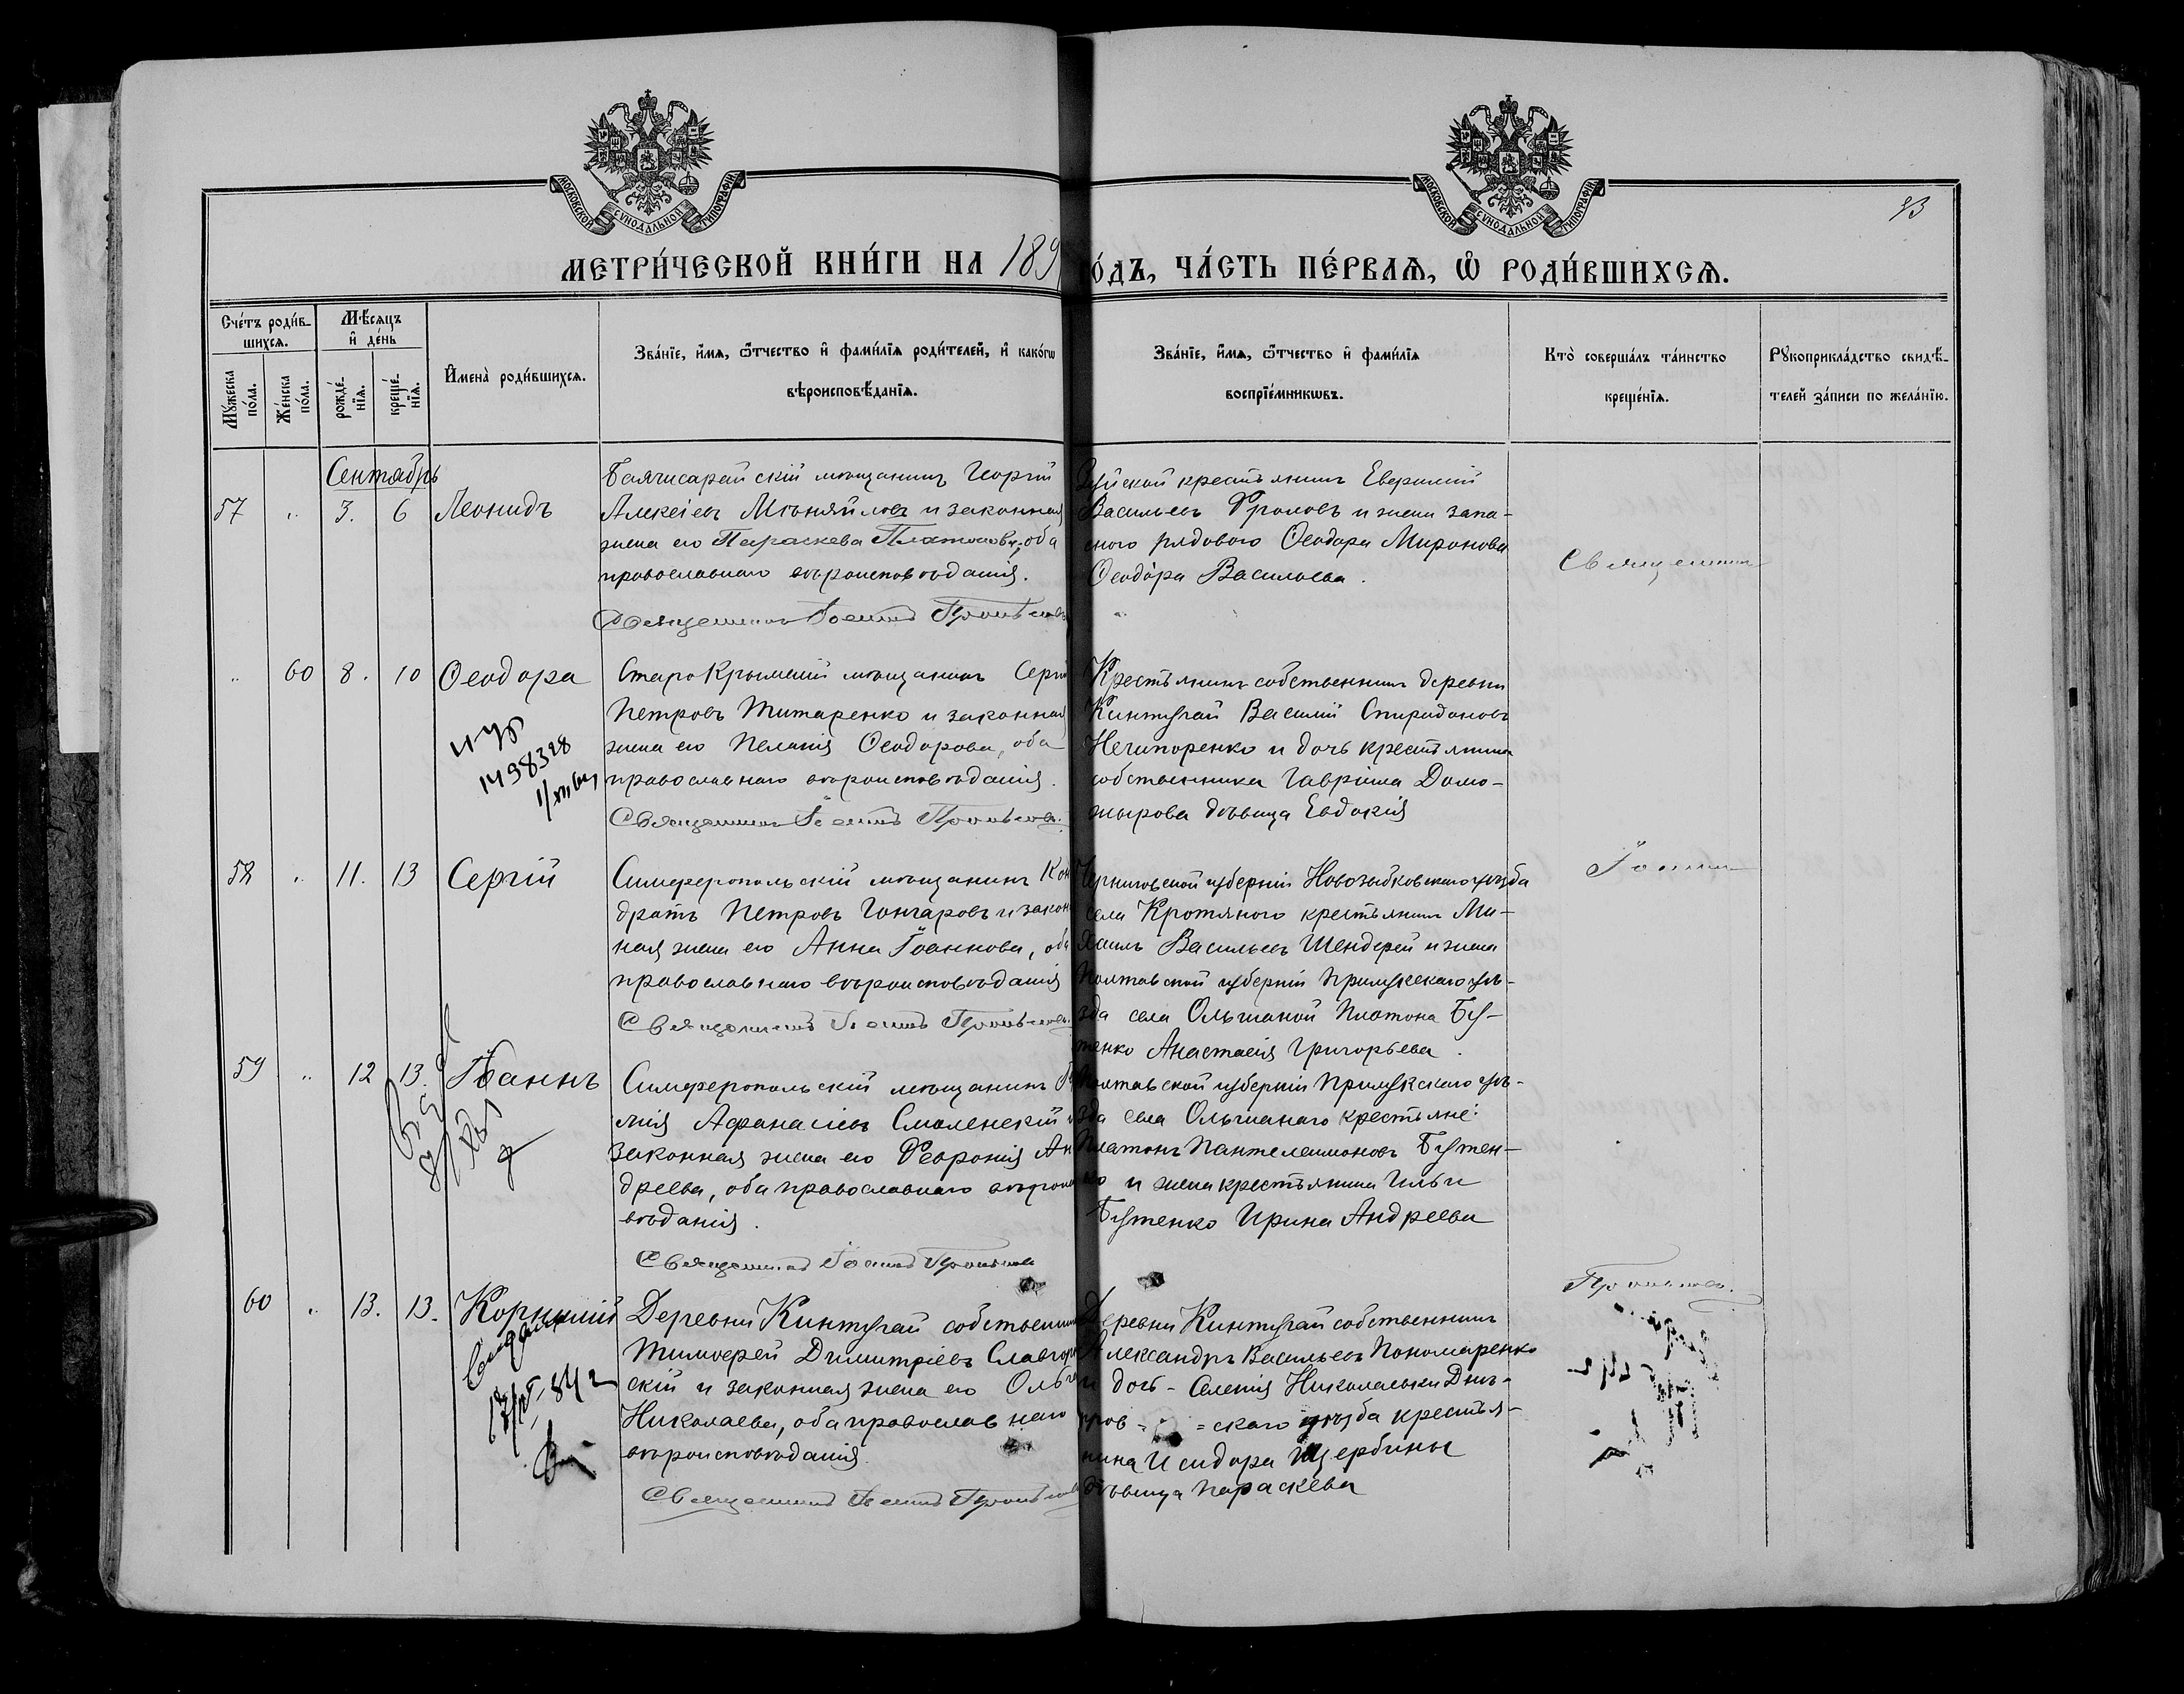 МОСКОВСКОЙ СѴНОДАЛЬНОЙ ТИПОГРАФІИ
МОСКОВСКОЙ СѴНОДАЛЬНОЙ ТИПОГРАФІИ
МЕТРИ́ЧЕСКОЙ КНИ́ГИ НА 189
О́ДЪ, ЧА́СТЬ ПЕ́РВАѦ, Ѡ҆ РОДИ́ВШИХСѦ.
Сче́тъ роди́в-
шихсѧ.
Мꙋ́жеска по́ла.
Же́нска по́ла.
Мѣ́сѧцъ
и҆ де́нь
рожде́нїѧ.
креще́нїѧ.
И҆мена̀ роди́вшихсѧ.
Зва́нїе, и҆́мѧ, ѻ҆́тчество и҆ фами́лїѧ роди́телей, и҆ како́гѡ
вѣроисповѣ́данїѧ.
Зва́нїе, и҆́мѧ, ѻ҆́тчество и҆ фами́лїѧ
воспрїе́мникѡвъ.
Кто̀ соверша́лъ та́инство
креще́нїѧ.
Рꙋкоприкла́дство свидѣ́-
телей за́писи по жела́нїю.
Сентябрь
57 " 3. 6 Леонидъ
Бахчисарайскій мѣщанинъ Георгій
Алексѣевъ Мѣняйловъ и законная
жена его Параскева Платонова, оба
православнаго вѣроисповѣданія.
Священникъ Іоаннъ
Зуйской крестьянинъ Евѳимій
Васильевъ Фроловъ и жена запа-
сного рядового Ѳеодора Миронова
Ѳеодора Васильева.
Священникъ
" 60 8. 10 Ѳеодора
1498328
Старокрымскій мѣщанинъ Сергій
Петровъ Титаренко и законная
жена его Пелагія Ѳеодорова, оба
православнаго вѣроисповѣданія.
Священникъ Іоаннъ
Крестьянинъ собственникъ деревни
Кинтугай Василій Спиридоновъ
Нечипоренко и дочь крестьянина
собственника Гавріила Домо-
жырова дѣвица Евдокія
58 " 11. 13 Сергій
Симферопольскій мѣщанинъ Кон
дратъ Петровъ Гончаровъ и закон
ная жена его Анна Іоаннова, оба
православнаго вѣроисповѣданія
Священникъ Іоаннъ
Черниговской губерніи Новозыбковскаго уѣзда
села Кротянаго крестьянинъ Ми-
хаилъ Васильевъ Шендерей и жена
Полтавской губерніи Прилукскаго уѣ-
зда села Ольшаной Платона Бу-
тенко Анастасія Григорьева.
Іоаннъ
59 " 12 13. Іоаннъ
Симферопольскій мѣщанинъ
Аѳанасіевъ Смоленскій и
законная жена его Ѳевронія Ан
дреева, оба православнаго вѣроиспо
вѣданія.
Священникъ Іоаннъ
Полтавской губерніи Прилукскаго уѣ-
зда села Ольшанаго крестьяне:
Платонъ Пантелеимоновъ Бутен-
ко и жена крестьянина Ильи
Бутенко Ирина Андреева
60 " 13. 13. Корнилій
Деревни Кинтугай собственникъ
Тимоѳей Димитріевъ Славгород
скій и законная жена его Ольга
Николаева, оба православнаго
вѣроисповѣданія.
Священникъ Іоаннъ
Деревни Кинтугай собственникъ
Александръ Васильевъ Пономаренко
и дочь - Николаевки Днѣ-
пров- =скаго уѣзда крестья-
нина Исидора Щербины
дѣвица Параскева